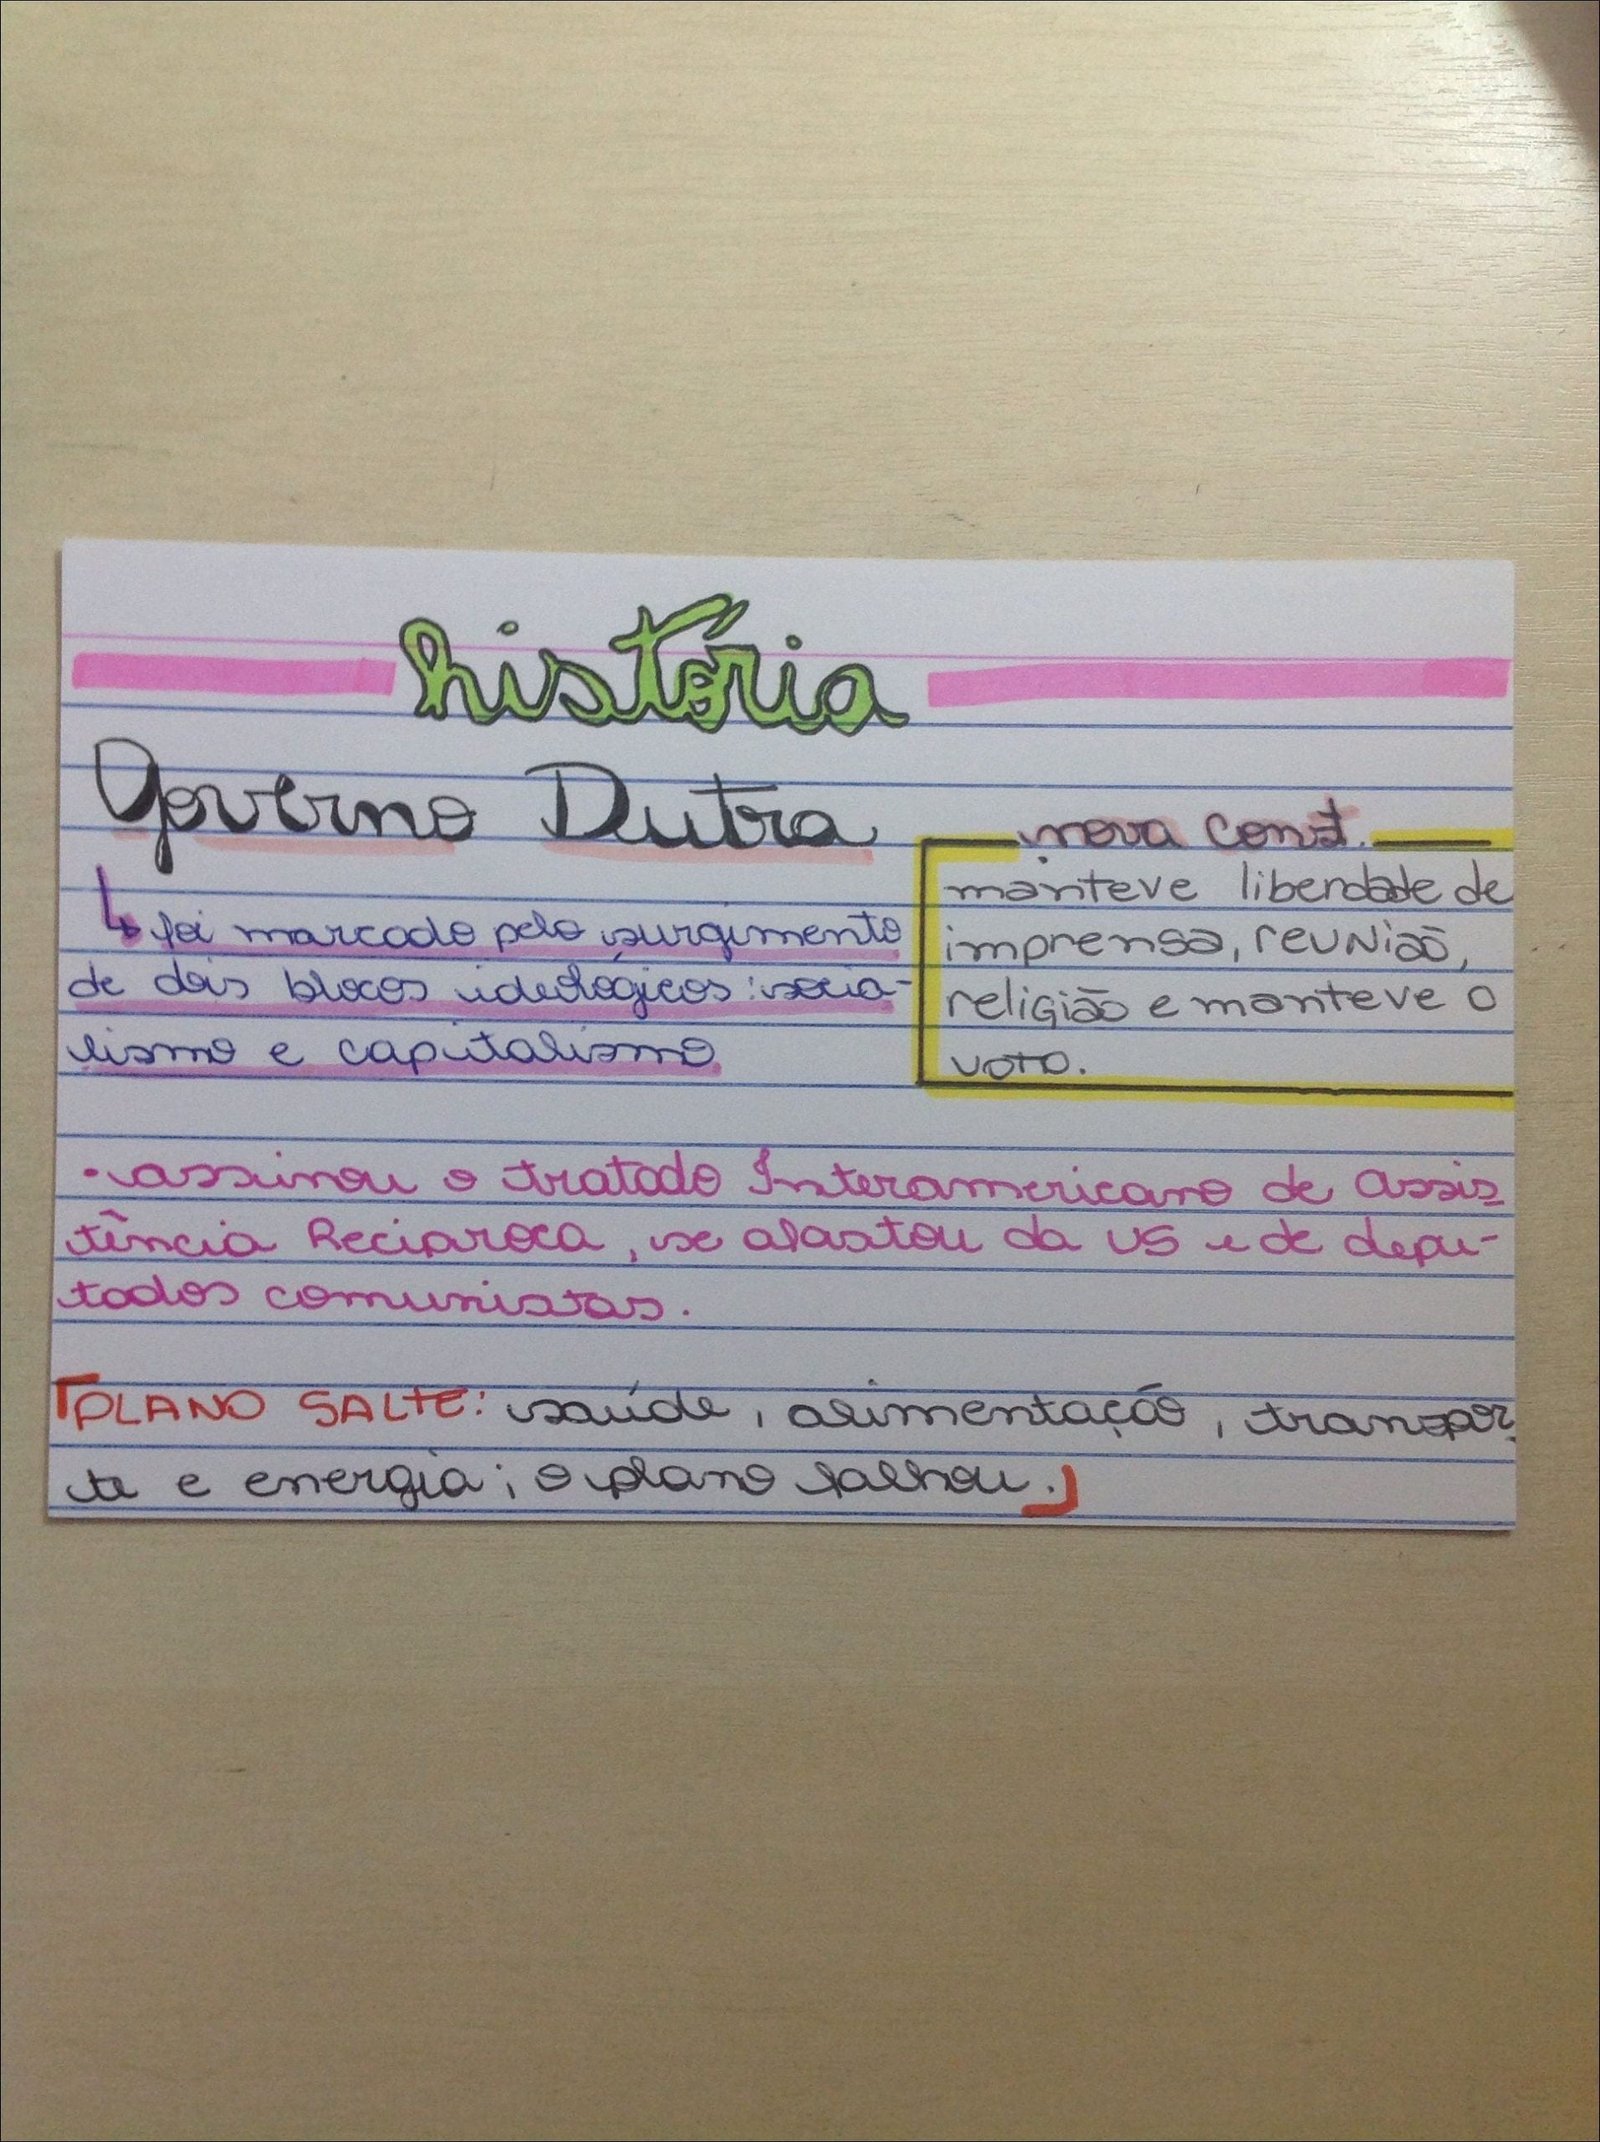 história
Governo Dutra
↳ foi marcado pelo surgimento
de dois blocos ideológicos: socia-
lismo e capitalismo
nova const.
manteve liberdade de
imprensa, reunião,
religião e manteve o
voto.
• assinou o tratado Interamericano de Assis
tência Reciproca, se afastou da US e de depu-
tados comunistas.
PLANO SALTE: saúde, alimentação, transpor
te e energia; o plano falhou.